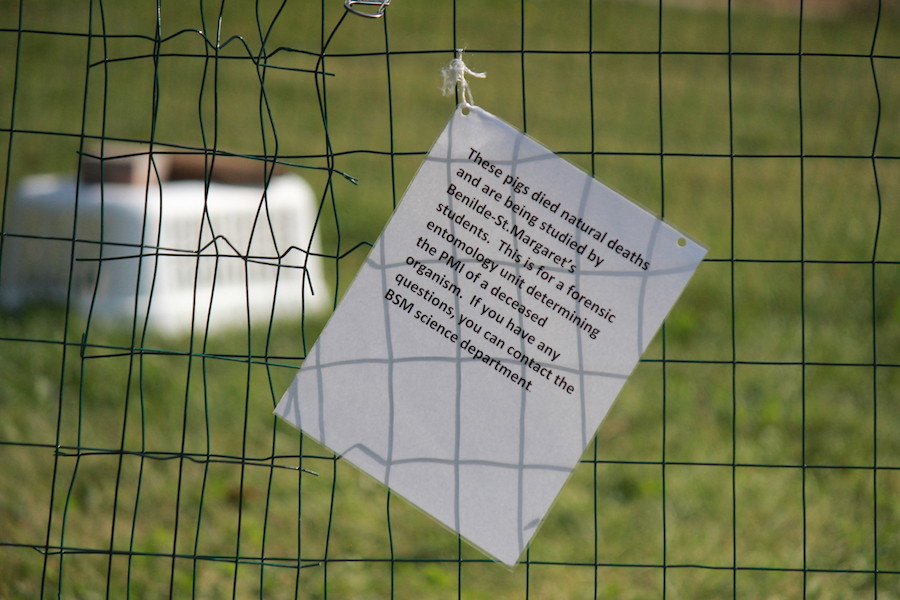 These pigs died natural deaths
and are being studied by
Benilde-St.Margaret's
students. This is for a forensic
entomology unit determining
the PMI of a deceased
organism. If you have any
questions, you can contact the
BSM science department